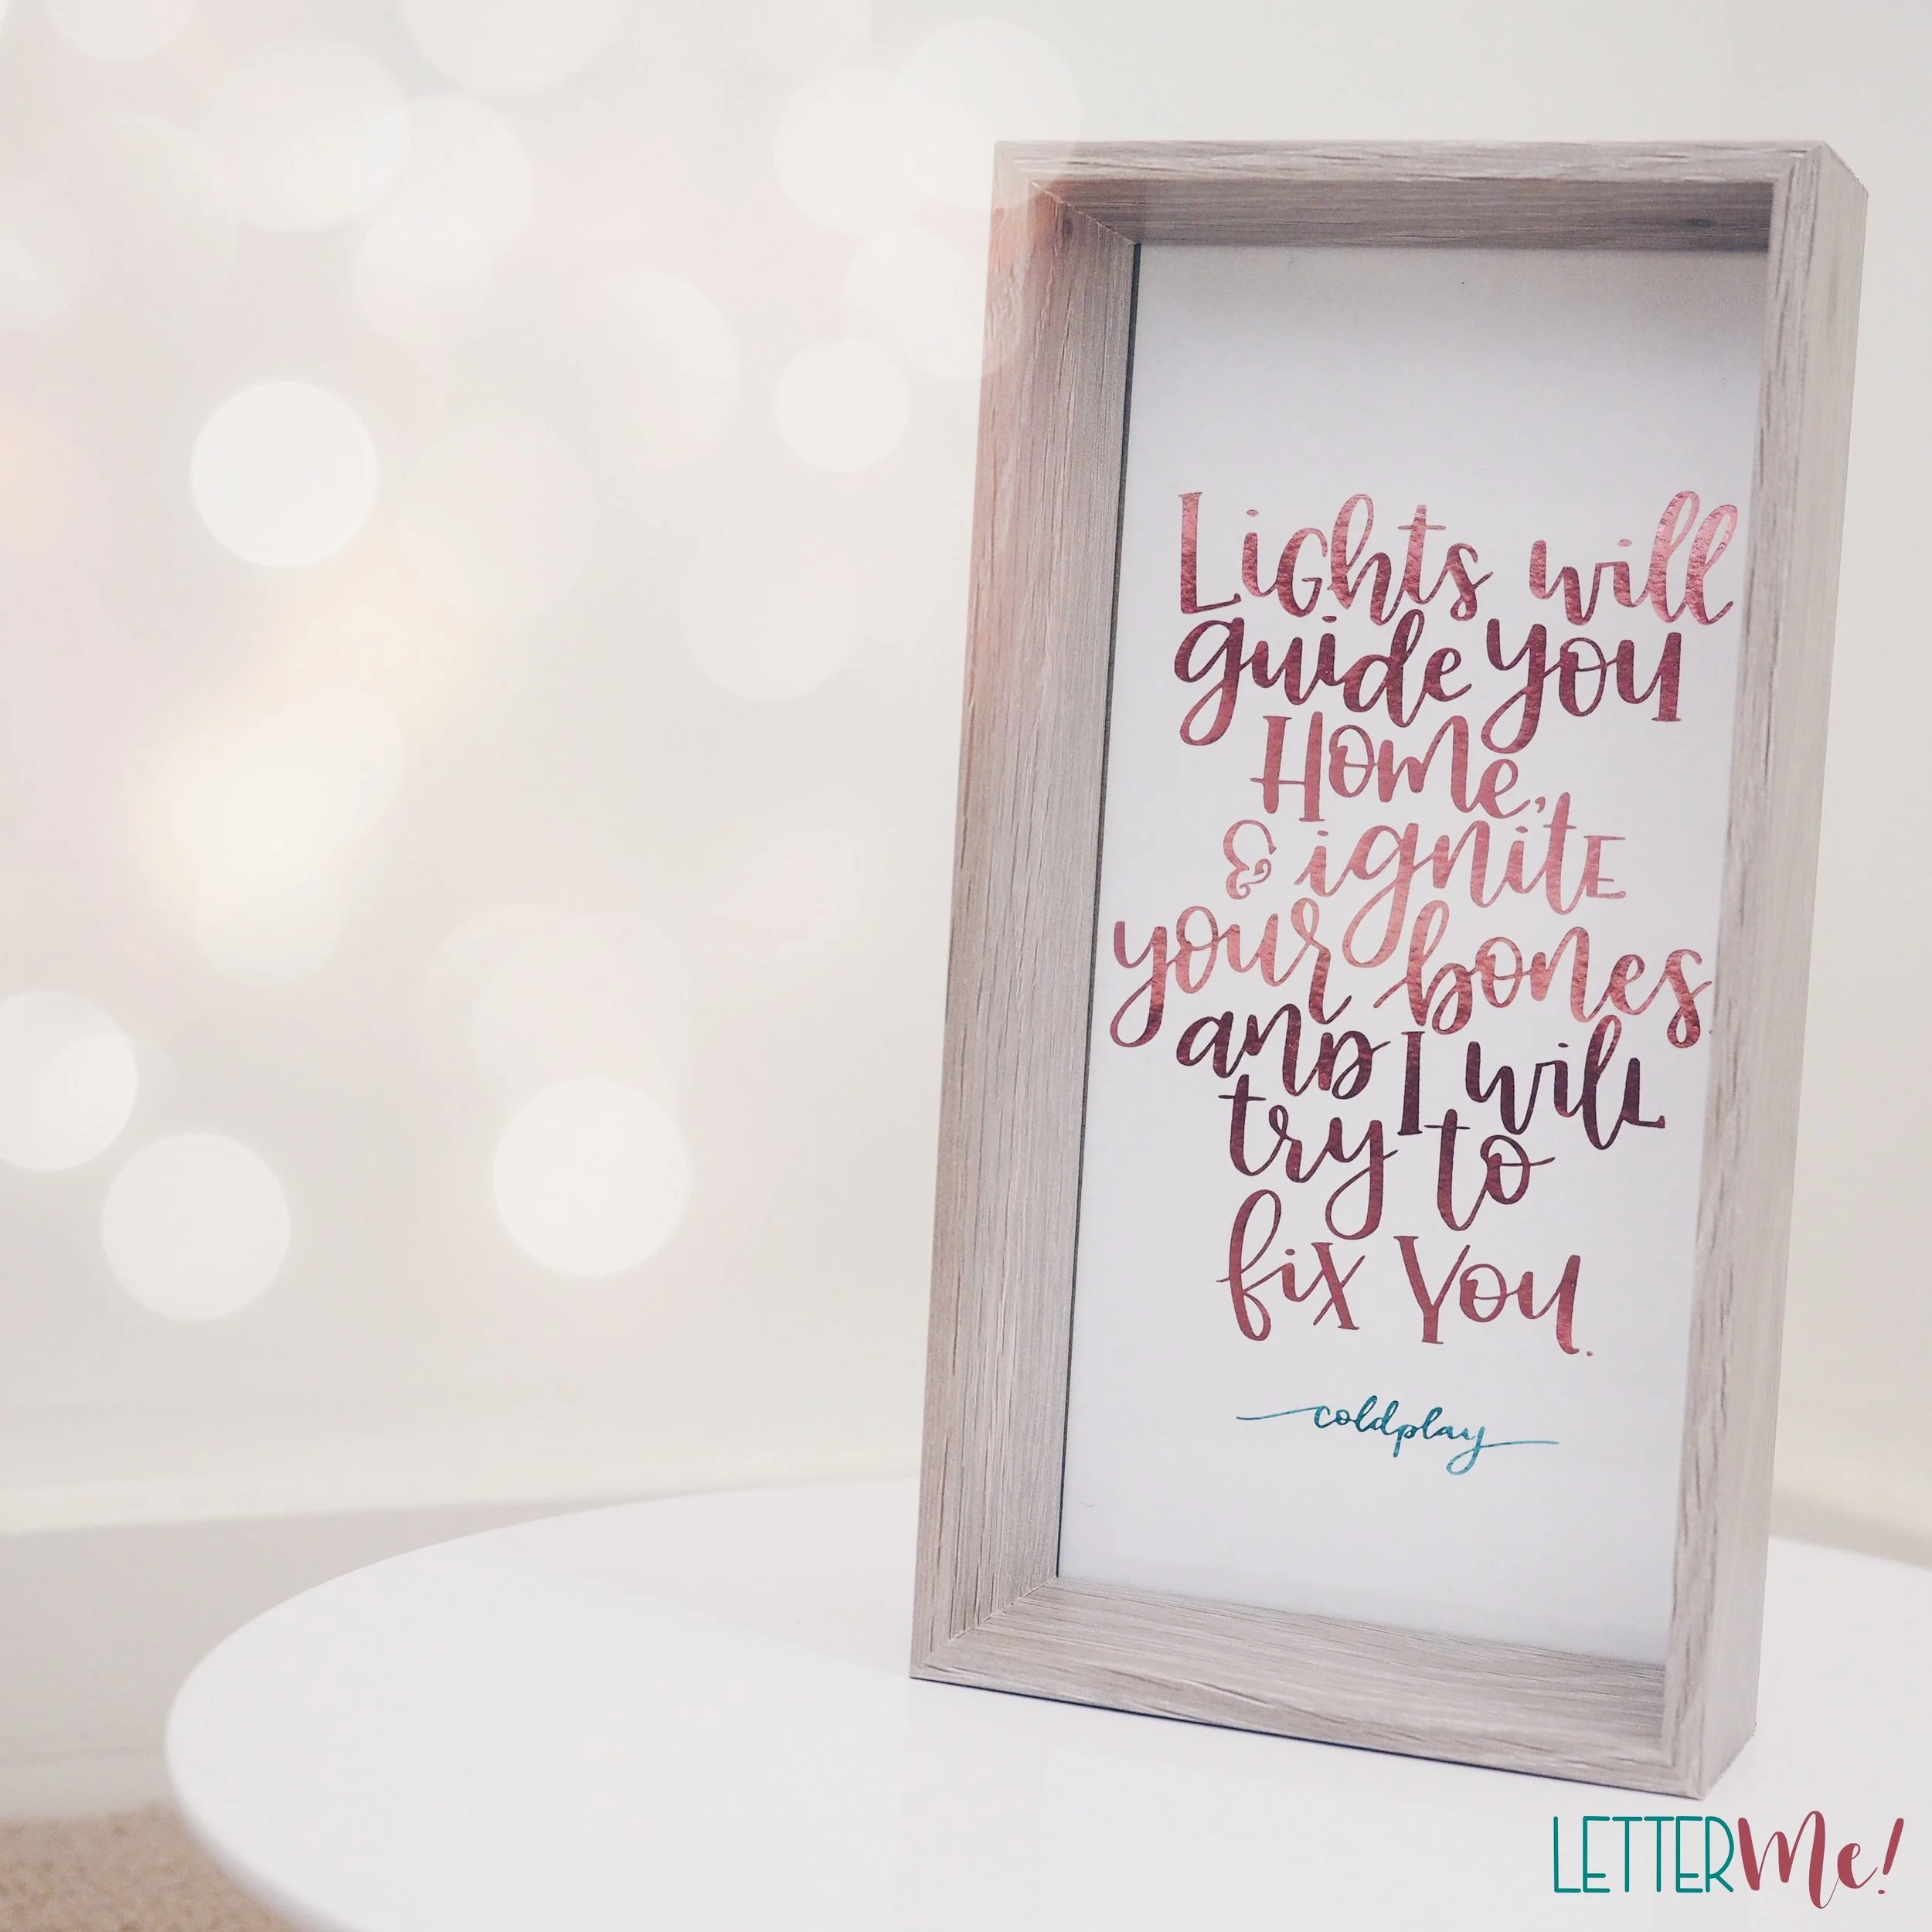 Lights will
guide you
Home,
& ignite
your bones
and I will
try to
fix You.
coldplay
LETTERMe!